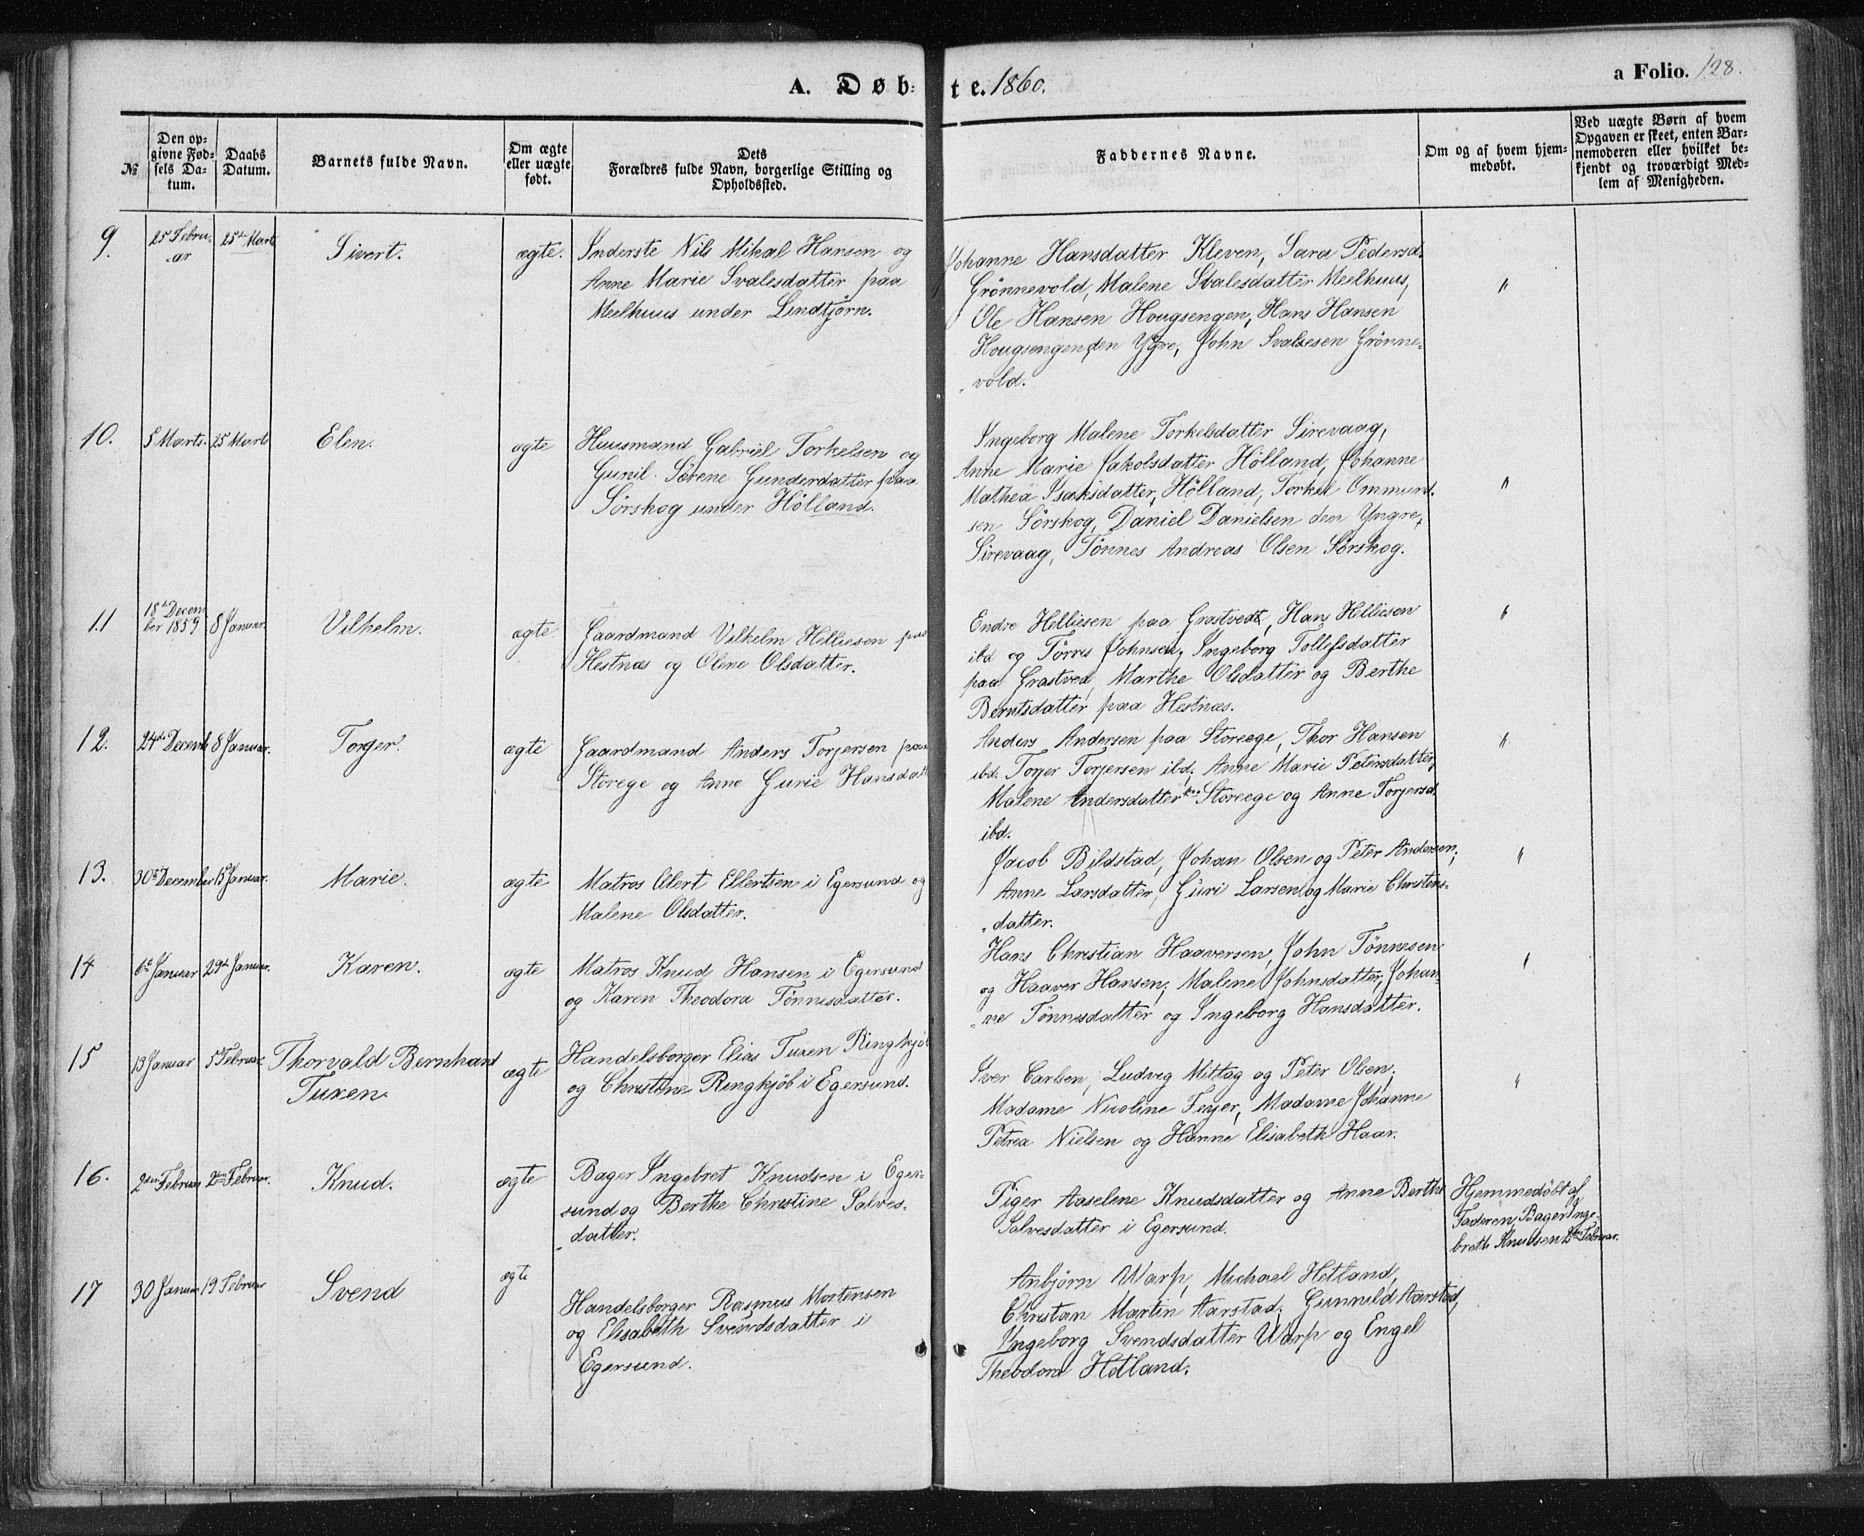 A. Døbte. 1860.
a Folio. 128.
№
Den op-
givne Fød-
sels Da-
tum.
Daabs
Datum.
Barnets fulde Navn.
Om ægte
eller uægte
født.
Dets
Forældres fulde Navn, borgerlige Stilling og
Opholdssted.
Faddernes Navne.
Om og af hvem hjem-
medøbt.
Ved uægte Børn af hvem
Opgaven er skeet, enten Bar-
nemoderen eller hvilket be-
kjendt og troværdigt Med-
lem af Menigheden.
9.
25 Febru-
-ar
25de Marts
Sivert.
ægte.
Inderste Nils Mikal Hansen og
Anne Marie Svalesdatter paa
Meelhuus under Lindtjørn.
Johanne Hansdatter Kleven, Sara Pedersd.
Grönnevold, Malene Svalesdatter Meelhuus,
Ole Hansen Hougsengen, Hans Hansen
Hougsengen, den Ygre, John Svalesen Grönne-
-vold.
"
10.
5 Marts.
25 Marts
Elen.
ægte
Huusmand Gabriel Torkelsen og
Gunil Sørene Gunderdatter paa
Sörskog under Hölland.
Ingeborg Malene Torkelsdatter Sirevaag,
Anne Marie Jakobsdatter Hölland, Johanne
Mathea Isaksdatter, Hölland, Torkel Ommund-
sen Sörskog, Daniel Danielsen den Yngre,
Sirevaag, Tönnes Andreas Olsen Sörskog.
"
11
18de Decem
ber 1859
8 Januar.
Vilhelm.
ægte
Gaardmand Vilhelm Helliesen paa
Hestnæs og Olene Olsdatter.
Endre Helliesen paa Grastvedt, Hans Helliesen
ibd og Törres Johnsen, Ingeborg Tollefsdatter
paa Grastved, Marthe Olsdatter og Berthe
Berntsdatter paa Hestnæs.
"
12.
24de Decemb
8 Januar.
Torger.
ægte
Gaardmand Anders Torjersen paa
Storege og Anne Gurie Hansdatt
Anders Andersen paa Storeege, Thor Hansen
ibd. Torjer Torjersen ibd; Anne Marie Petersdatter,
Malene Andersdatter paa Storeege og Anne Torjersd.
ibd.
"
13.
30te December
15 Januar.
Marie.
ægte
Matros Olert Ellertsen i Egersund og
Malene Olsdatter.
Jacob Bildstad, Johan Olsen og Peter Andersen;
Anne Larsdatter, Guri Larsen og Marie Christens-
-datter.
"
14
6te Januar
29de Januar.
Karen.
ægte
Matros Knud Hansen i Egersund
og Karen Theodora Tönnesdatter.
Hans Christian Haaversen, John Tönnesen
og Haaver Hansen; Malene Johnsdatter, Johan-
-ne Tönnesdatter og Ingeborg Hansdatter.
"
15
13 Januar
5te Februar
Thorvald Bernhard
Tuxen
ægte
Handelsborger Elias Tuxen Ringkjöb
og Christine Ringkjöb i Egersund.
Iver Carlsen, Ludvig Mittag og Peter Olsen;
Madame Nicoline Feyer, Madame Johanne
Petrea Nielsen og Hanne Elisabeth Haar.
"
16.
2den Februar
2den Februar.
Knud.
ægte
Bager Ingebret Knudsen i Eger-
sund og Berthe Christine Salves-
-datter.
Piger Aaselene Knudsdatter og Anne Berthe
Salvesdatter i Egersund.
Hjemmedöbt af
Faderen, Bager Inge-
breth Knudsen 2den Februar.
17
30 Januar
19 Februar
Svend
ægte
Handelsborger Rasmus Mortensen
og Elisabeth Svendsdatter i
Egersund.
Anbjörn Warp, Michael Hetland,
Christan Martin Aarstad; Gunnild Aarstad,
Ingeborg Svendsdatter Warp og Engel
Theodora Hetland.